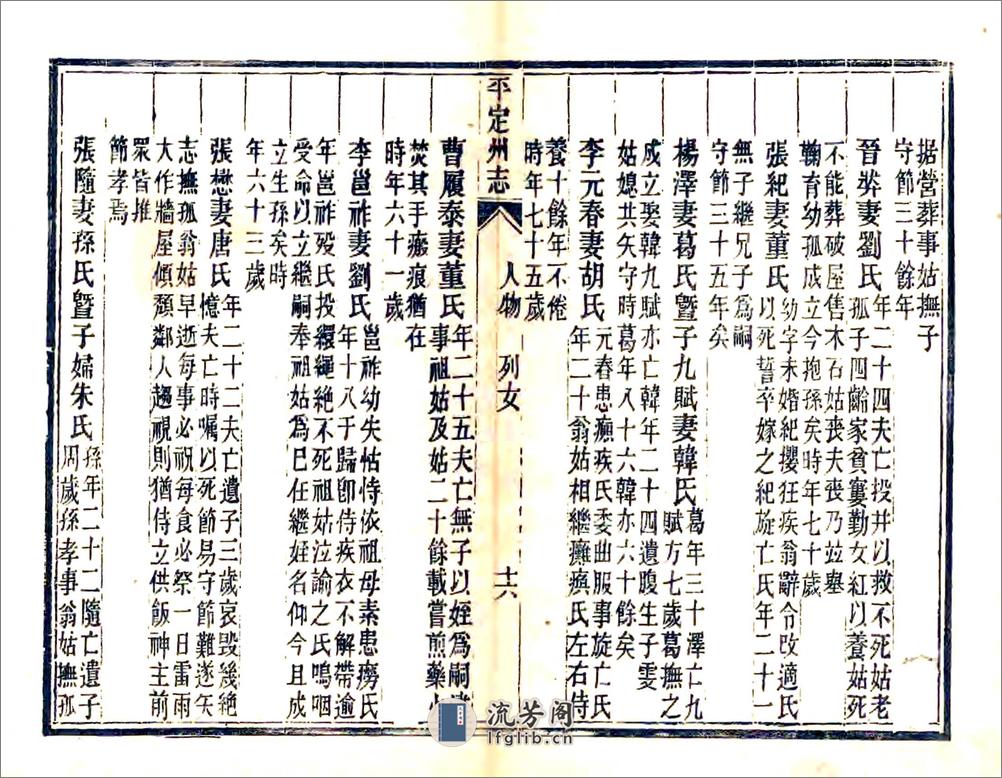 据營葬事姑撫子
守節三十餘年
晉妻劉氏
年二十四夫亡投井以救不死姑老
孤子四齡家貧窶勤女紅以養姑死
不能葬破屋售木石姑喪夫喪乃竝塟
鞠育幼孤成立今抱孫矣時年七十歲
張紀妻董氏
幼字未婚紀攖狂疾翁辭令改適氏
以死誓卒嫁之紀旋亡氏年二十一
無子繼兄子爲嗣
守節三十五年矣
楊澤妻葛氏暨子九賦妻韓氏
葛年三十澤亡九
賦方七歲葛撫之
成立娶韓九賦亦亡韓年二十四遺腹生子雯
姑媳共矢守時葛年八十六韓亦六十餘矣
李元春妻胡氏
元春患癲疾氏委曲服事旋亡氏
年二十翁姑相繼癱瘓氏左右侍
養十餘年不倦
時年七十五歲
平定州志
人物 列女
十六
曹履泰妻董氏
年二十五夫亡無子以姪爲嗣
事祖姑及姑二十餘載嘗煎藥火
焚其手瘢痕猶在
時年六十一歲
李邕祚妻劉氏
邕祚幼失怙恃依祖母素患癆氏
年十八于歸卽侍疾衣不解帶逾
年邕祚歿氏投繯繩絶不死祖姑泣諭之氏鳴咽
受命以立繼嗣奉祖姑爲已任繼姪名仰今且成
立生孫矣時
年六十三歲
張懋妻唐氏
年二十二夫亡遺子三歲哀毀幾絶
憶夫亡時囑以死節易守節難遂矢
志撫孤翁姑早逝每事必祝每食必祭一日雷雨
大作牆屋傾頹鄰人趨視則猶侍立供飯神主前
眾皆推
節孝焉
張隨妻孫氏暨子婦朱氏
孫年二十二隨亡遺子
周歲孫孝事翁姑撫孤
流芳阁
lfglib.cn